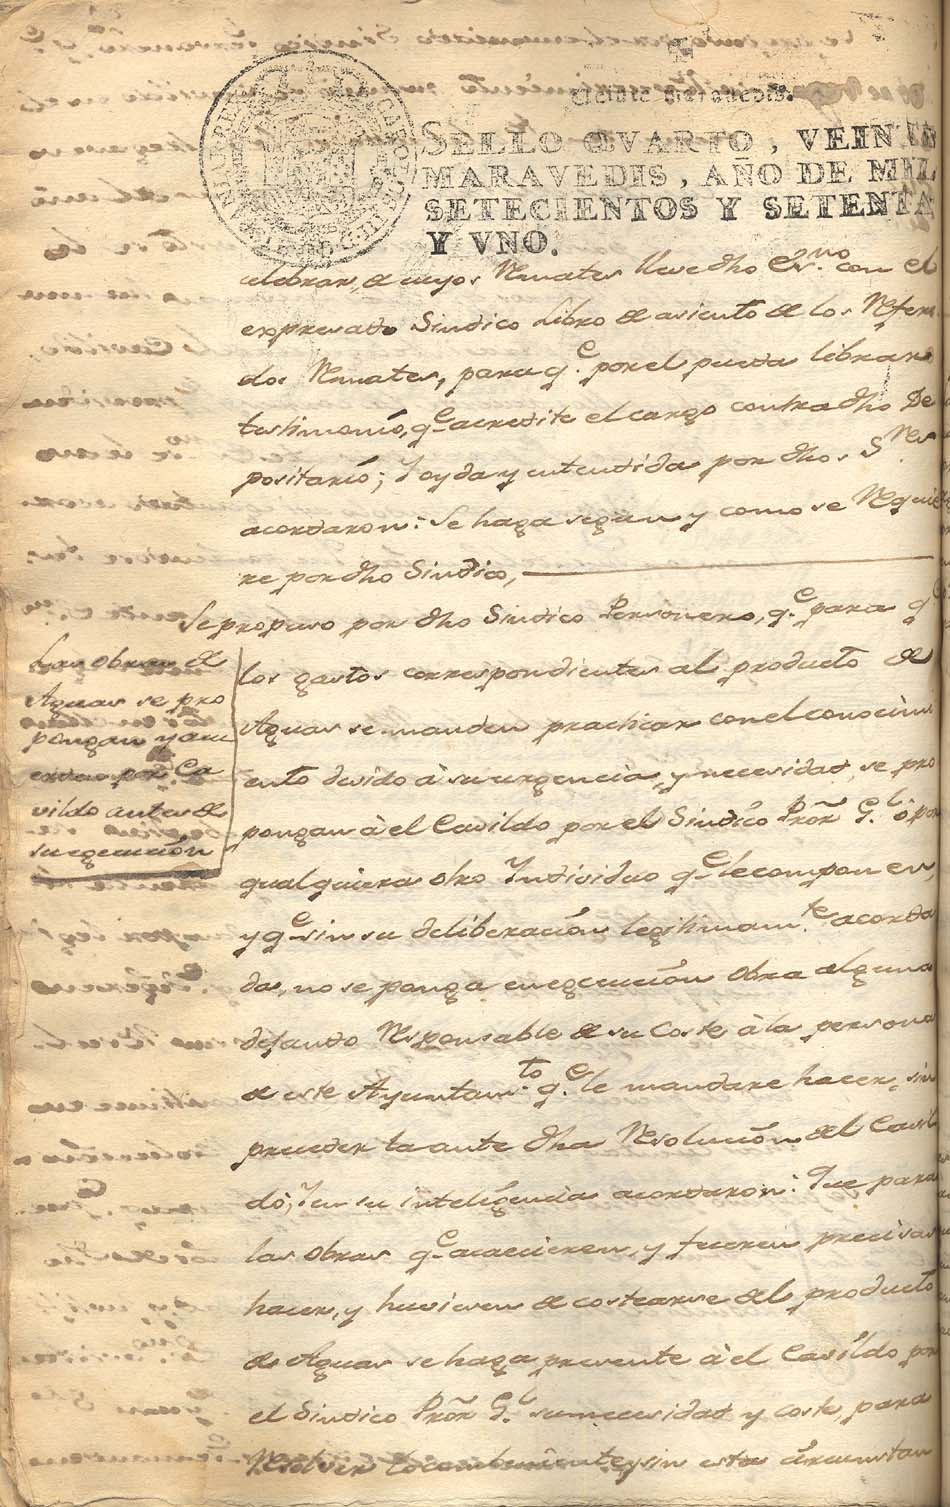 Veinte maravedis.
SELLO QVARTO, VEINTE
MARAVEDIS, AÑO DE MIL
SETECIENTOS Y SETENTA
Y VNO.
celebrar, de cuyos Remates lleve dho Es.no con el
expresado Sindico Libro de asiento de los Referi
dos Remates, para q.e por el pueda librar
testimonio, q.e acredite el cargo contra dho De
positario; Y oyda y entendida por dhos S.res
acordaron: Se haga segun y como se Requie
re por dho Sindico,
Se propuso por dho Sindico Personero, q.e para q.e
los gastos correspondientes al producto de
Aguas se manden practicar con el conocimi
ento devido à su urgencia, y necesidad, se pro
pongan à el Cavildo por el Sindico Prõr G.l ò por
qualquiera otro Yndividuo q.e le componen,
y q.e sin su deliberación legitimam.te acorda
da, no se ponga en egecución Obra alguna
dejando Responsable de su Coste à la persona
de este Ayuntam.to q.e le mandare hacer, sin
preceder la ante dha Resolución del Cavil
do; Y en su inteligencia acordaron: Que para
las Obras q.e acaecieren, y fueren precisas
hacer, y huvieren de costearse del producto
de Aguas se haga presente à el Cavildo por
el Sindico Prõr G.l su necesidad y coste, para
Resolver lo combeniente, y sin esta circunstan
Las Obras de
Aguas se pro
pongan y acu
erden por Ca
vildo antes de
su egecución